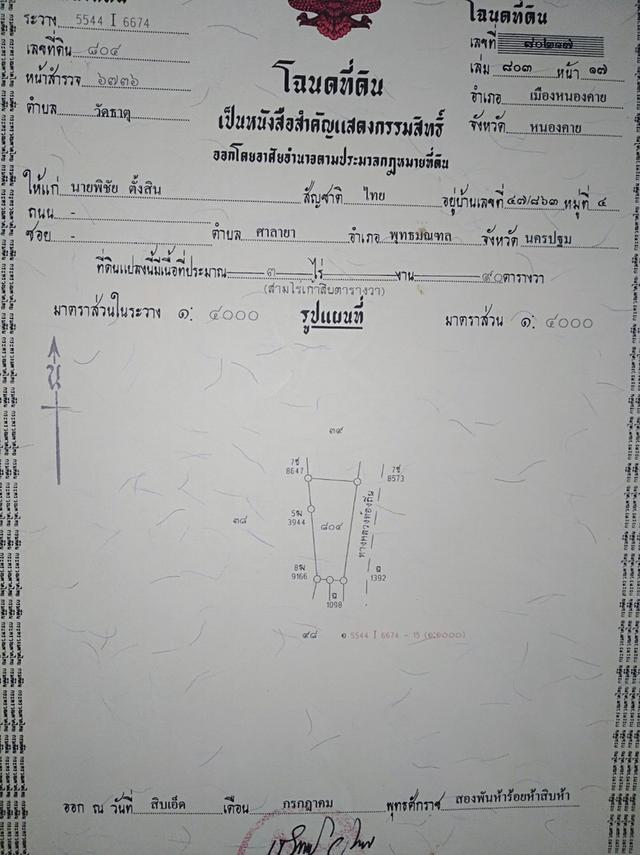 ระวาง 5544 I 6674
เลขที่ดิน ๘๐๔
หน้าสำรวจ ๖๗๓๖
ตำบล วัดธาตุ
โฉนดที่ดิน
เลขที่
เล่ม ๘๐๓ หน้า ๑๗
อำเภอ เมืองหนองคาย
จังหวัด หนองคาย
โฉนดที่ดิน
เป็นหนังสือสำคัญแสดงกรรมสิทธิ์
ออกโดยอาศัยอำนาจตามประมวลกฎหมายที่ดิน
ให้แก่ นายพิชัย ตั้งสิน สัญชาติ ไทย อยู่บ้านเลขที่ ๔๗/๘๖๓ หมู่ที่ ๔
ถนน -
ซอย - ตำบล ศาลายา อำเภอ พุทธมณฑล จังหวัด นครปฐม
ที่ดินแปลงนี้มีเนื้อที่ประมาณ ๓ ไร่ งาน ๙๐ ตารางวา
(สามไร่เก้าสิบตารางวา)
มาตราส่วนในระวาง ๑: ๔๐๐๐ รูปแผนที่ มาตราส่วน ๑: ๔๐๐๐
น
๓๙
7ช 8647
7ช 8573
5ฆ 3944
๘๐๔
ทางหลวงท้องถิ่น
๓๘
8ฆ 9166
ฉ 1392
ฉ 1098
๔๘
๑ 5544 I 6674 - 15 (๑:๑๐๐๐)
ออก ณ วันที่ สิบเอ็ด เดือน กรกฎาคม พุทธศักราช สองพันห้าร้อยห้าสิบห้า